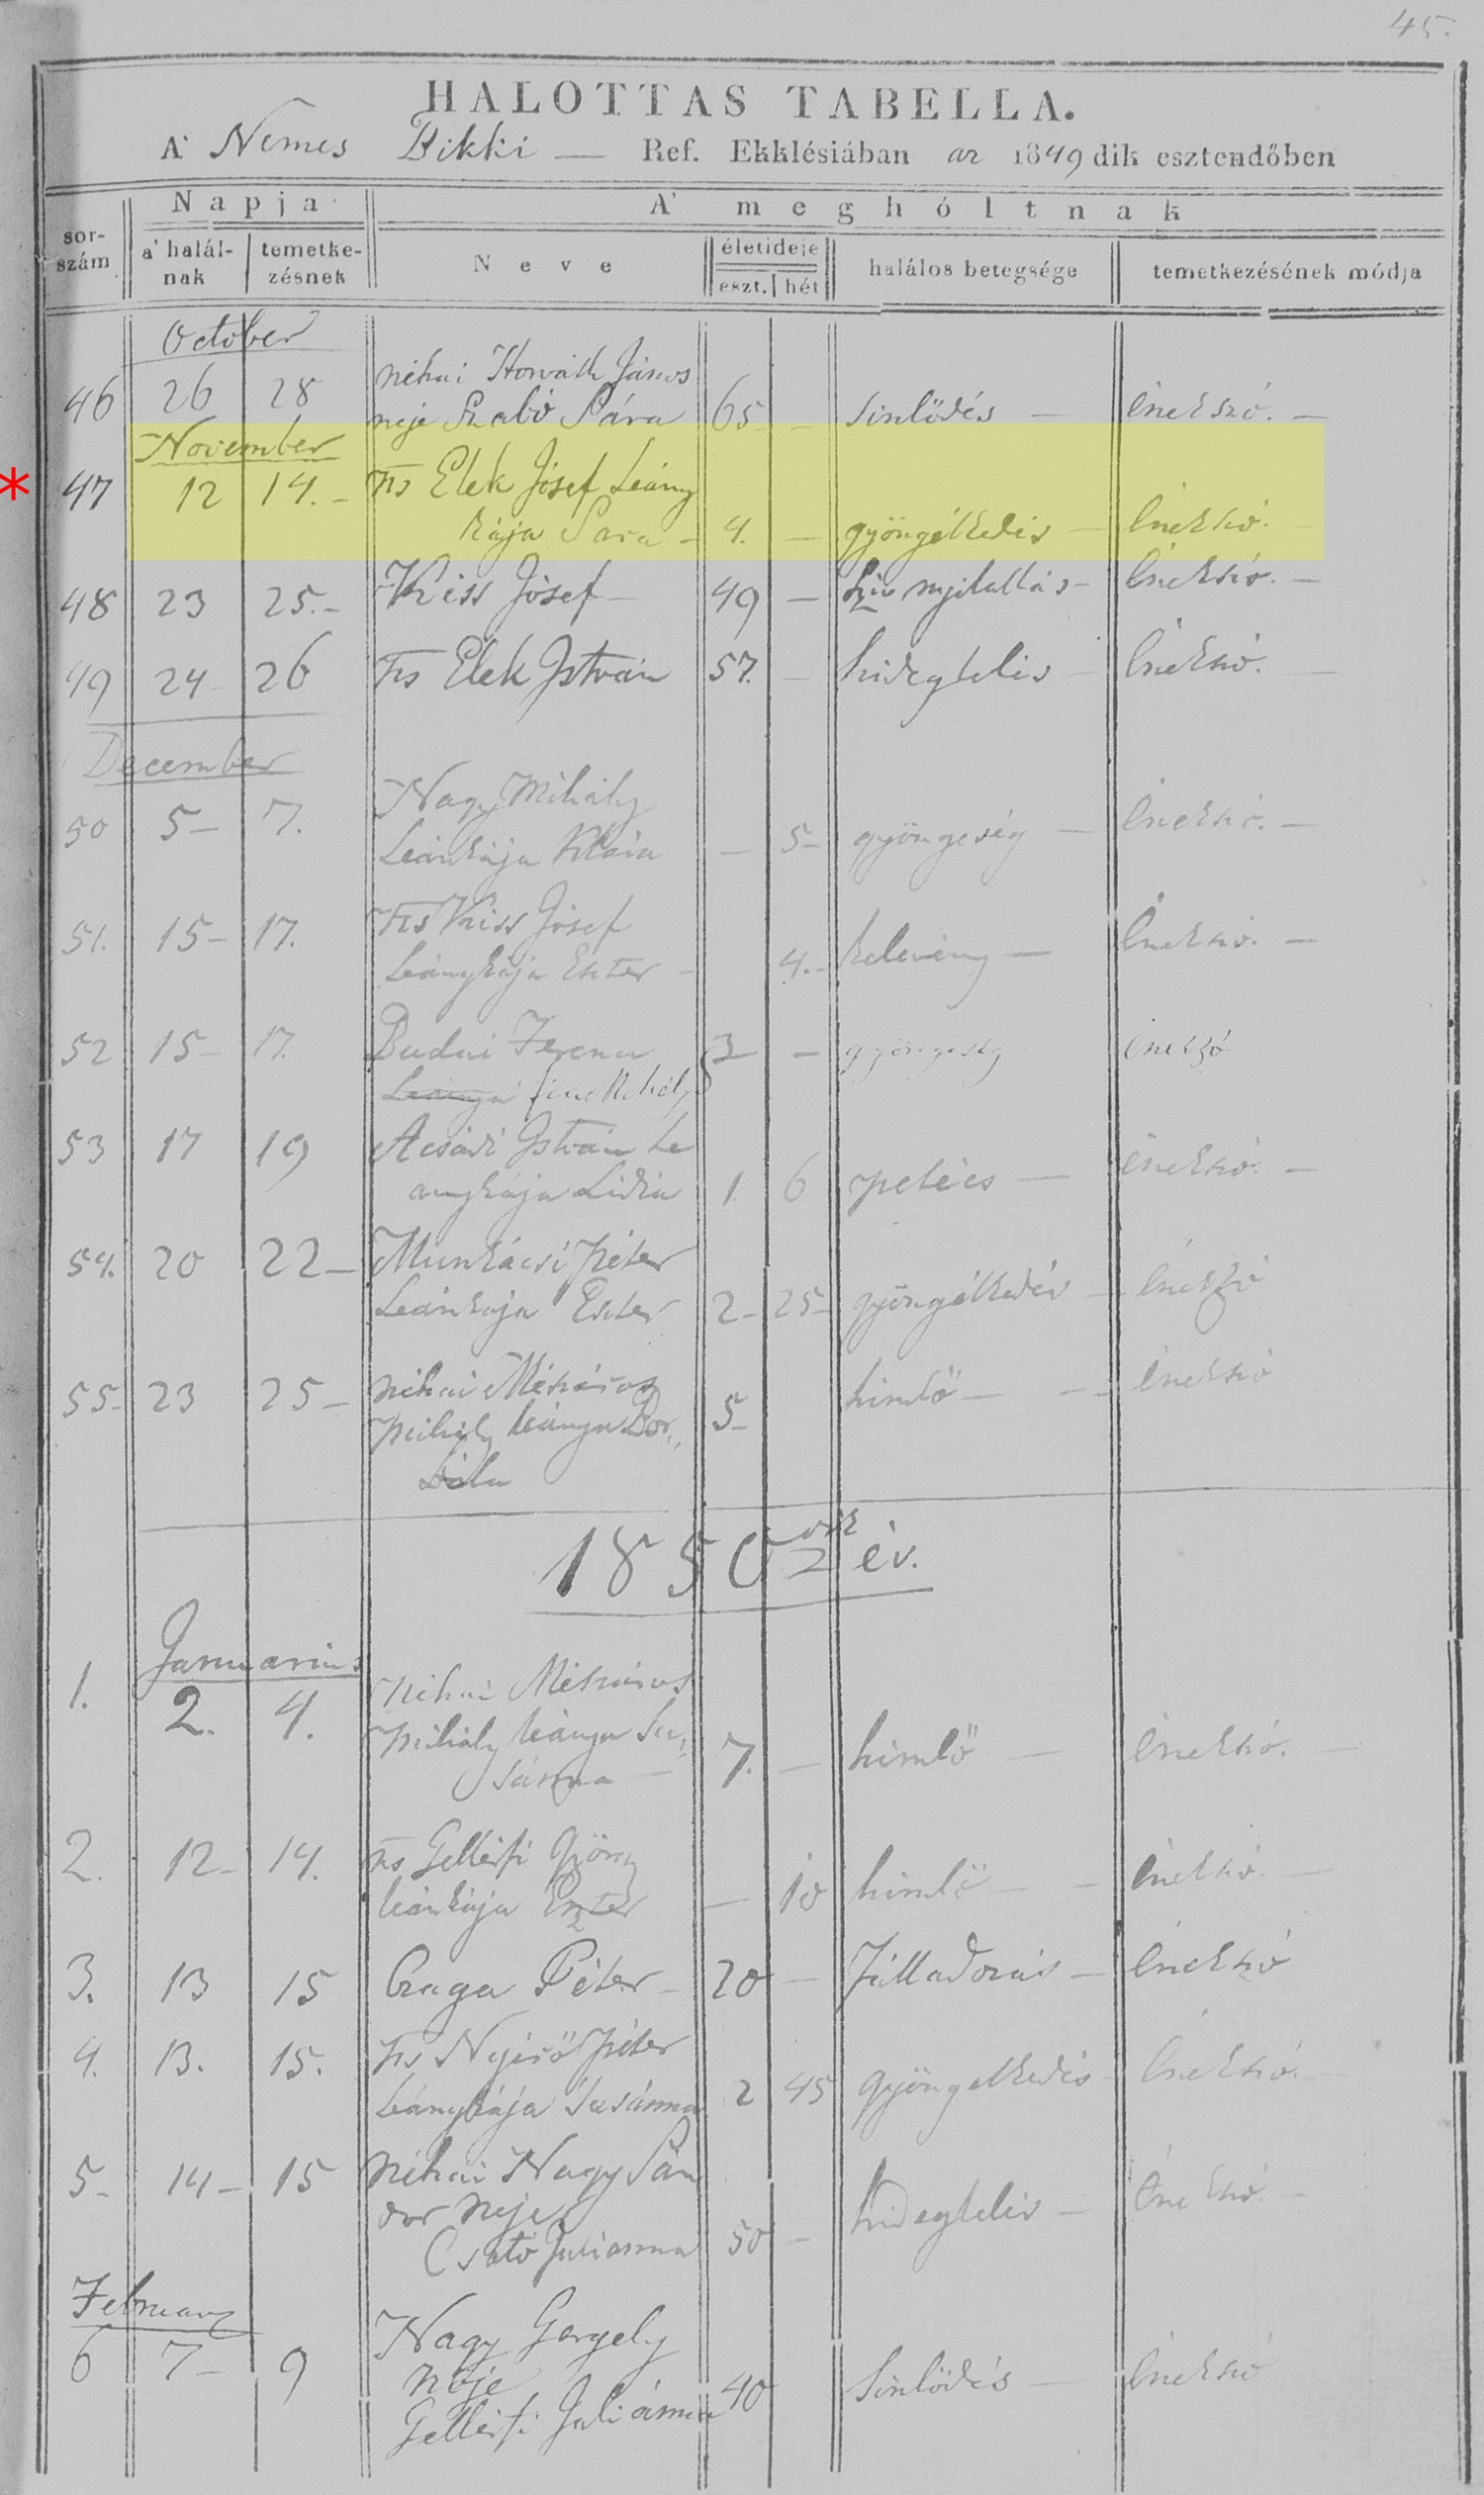 45.
HALOTTAS TABELLA.
A' Nemes Bikki — Ref. Ekklésiában az 1849 dik esztendőben
sor-szám
Napja
a' halál-nak
temetke-zésnek
A' meghóltnak
Neve
életideje
eszt. hét
halálos betegsége
temetkezésének módja
October
46 26 28 néhai Horváth János
neje Szabó Sára 65 — sinlődés — énekszó. —
November
* 47 12 14. — Ns Elek Jósef Leány
kája Sara — 4. — gyöngélkedés — énekszó. —
48 23 25. — Kiss Jósef — 49 — Szív nyilallás — énekszó. —
49 24 26 Ns Elek István 57. — hideglelés — énekszó. —
December
50 5 — 7. Nagy Mihály
Leánkája Klára — 5 — gyöngeség — énekszó. —
51. 15 — 17. Ns Kiss Jósef
Leánykája Eszter — 4. — kelevény — énekszó. —
52 15 — 17. Budai Ferencz
3 — gyöngeség énekszó
53 17 19 Acsádi István Le
anykája Lidia 1. 6 — énekszó. —
54. 20 22 — Munkácsi Péter
Leánkája Eszter 2 — 25 — gyöngélkedés — énekszó
55 — 23 25 — néhai Mészáros
Mihály leánya Bor,,
bála 5 — himlő — énekszó
1850 dik év.
Januarius
1. 2. 4. néhai Mészáros
Mihály leánya Su,,
sánna — 7. — himlő — énekszó. —
2. 12 — 14. Ns Gellérfi György
leánkája Eszter — 10 himlő — énekszó. —
3. 13 15 Czaga Péter — 20 — Fulladozás — énekszó
4. 13. 15. Ns Nyirő Péter
leánykája Susánna 2 45 gyöngelkedés — énekszó. —
5 — 14 — 15 Néhai Nagy Sán
dor neje
Csató Julianna 50 — hideglelés — énekszó. —
Februarz
6 7 — 9 Nagy Gergely
neje
Gellérfi Juliánna 40 Sinlődés — énekszó